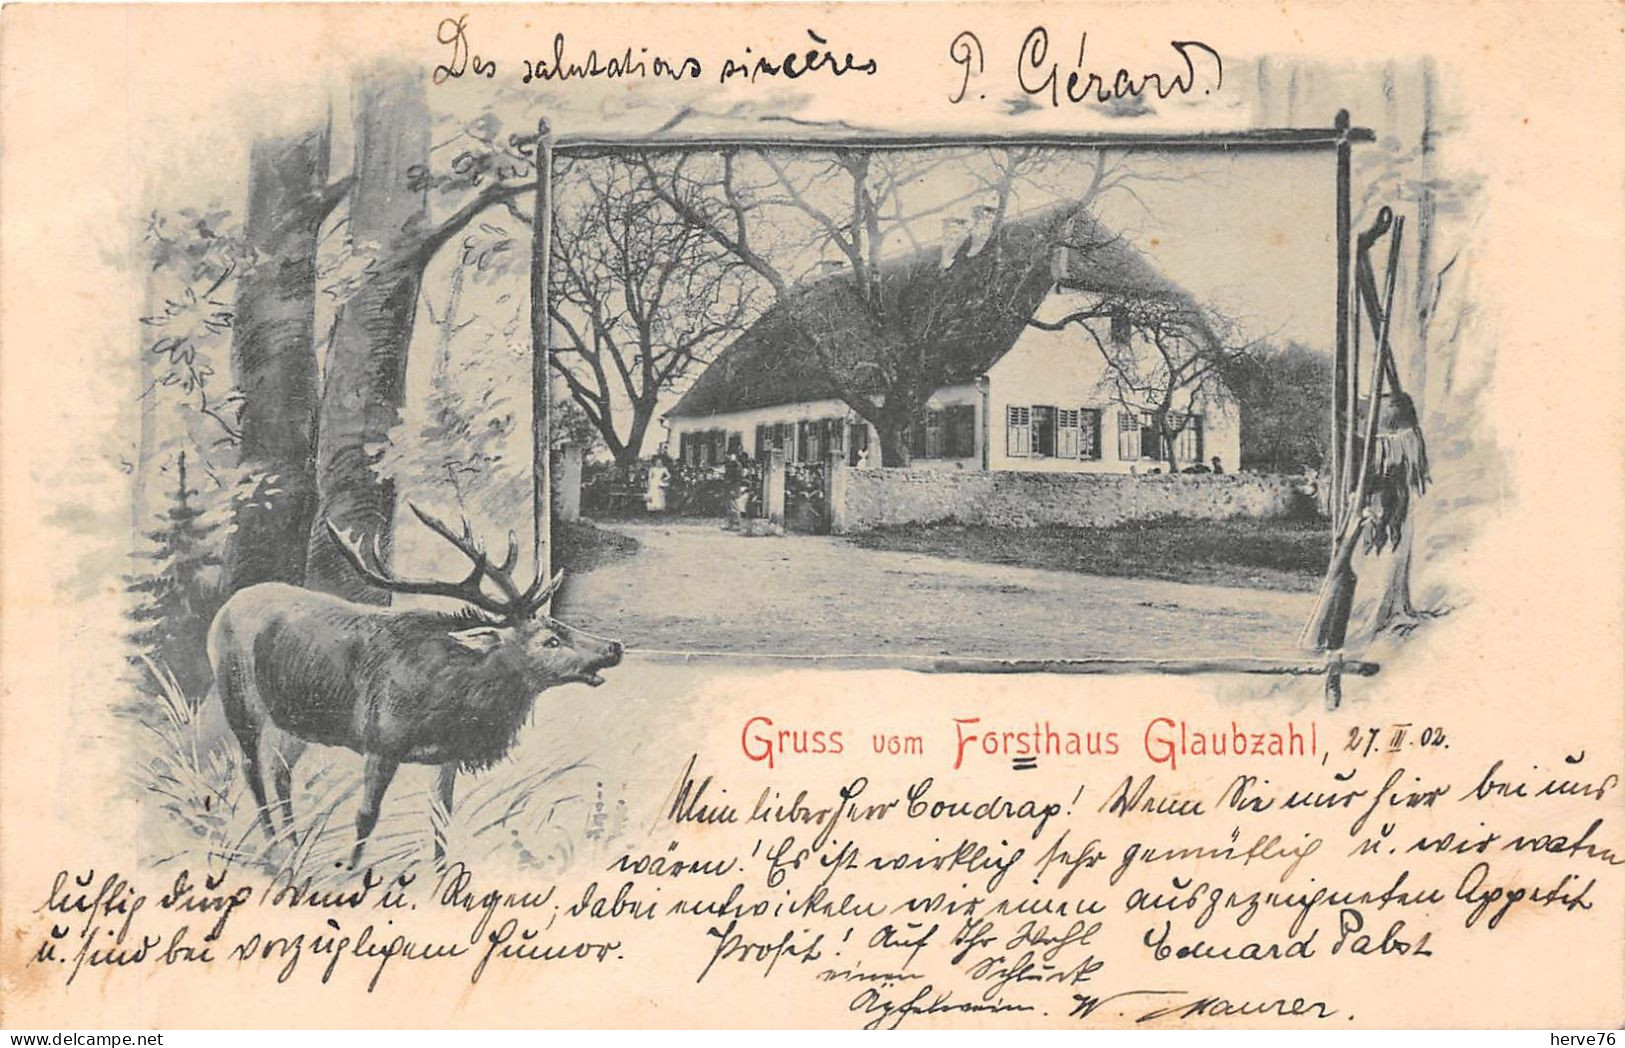 Des salutations sincères P. Gérard.
Gruss vom Forsthaus Glaubzahl, 27. III. 02.
Mein lieber Herr Coudrap! Wenn Sie nur hier bei uns
wären! Es ist wirklich sehr gemütlich u. wir waten
lustig durch Wind u. Regen, dabei entwickeln wir einen ausgezeichneten Appetit
u. sind bei vorzüglichem Humor. Prosit! Auf Ihr Wohl Eduard Pabst
einen Schluck
Äpfelwein. W. Maurer.
herve76